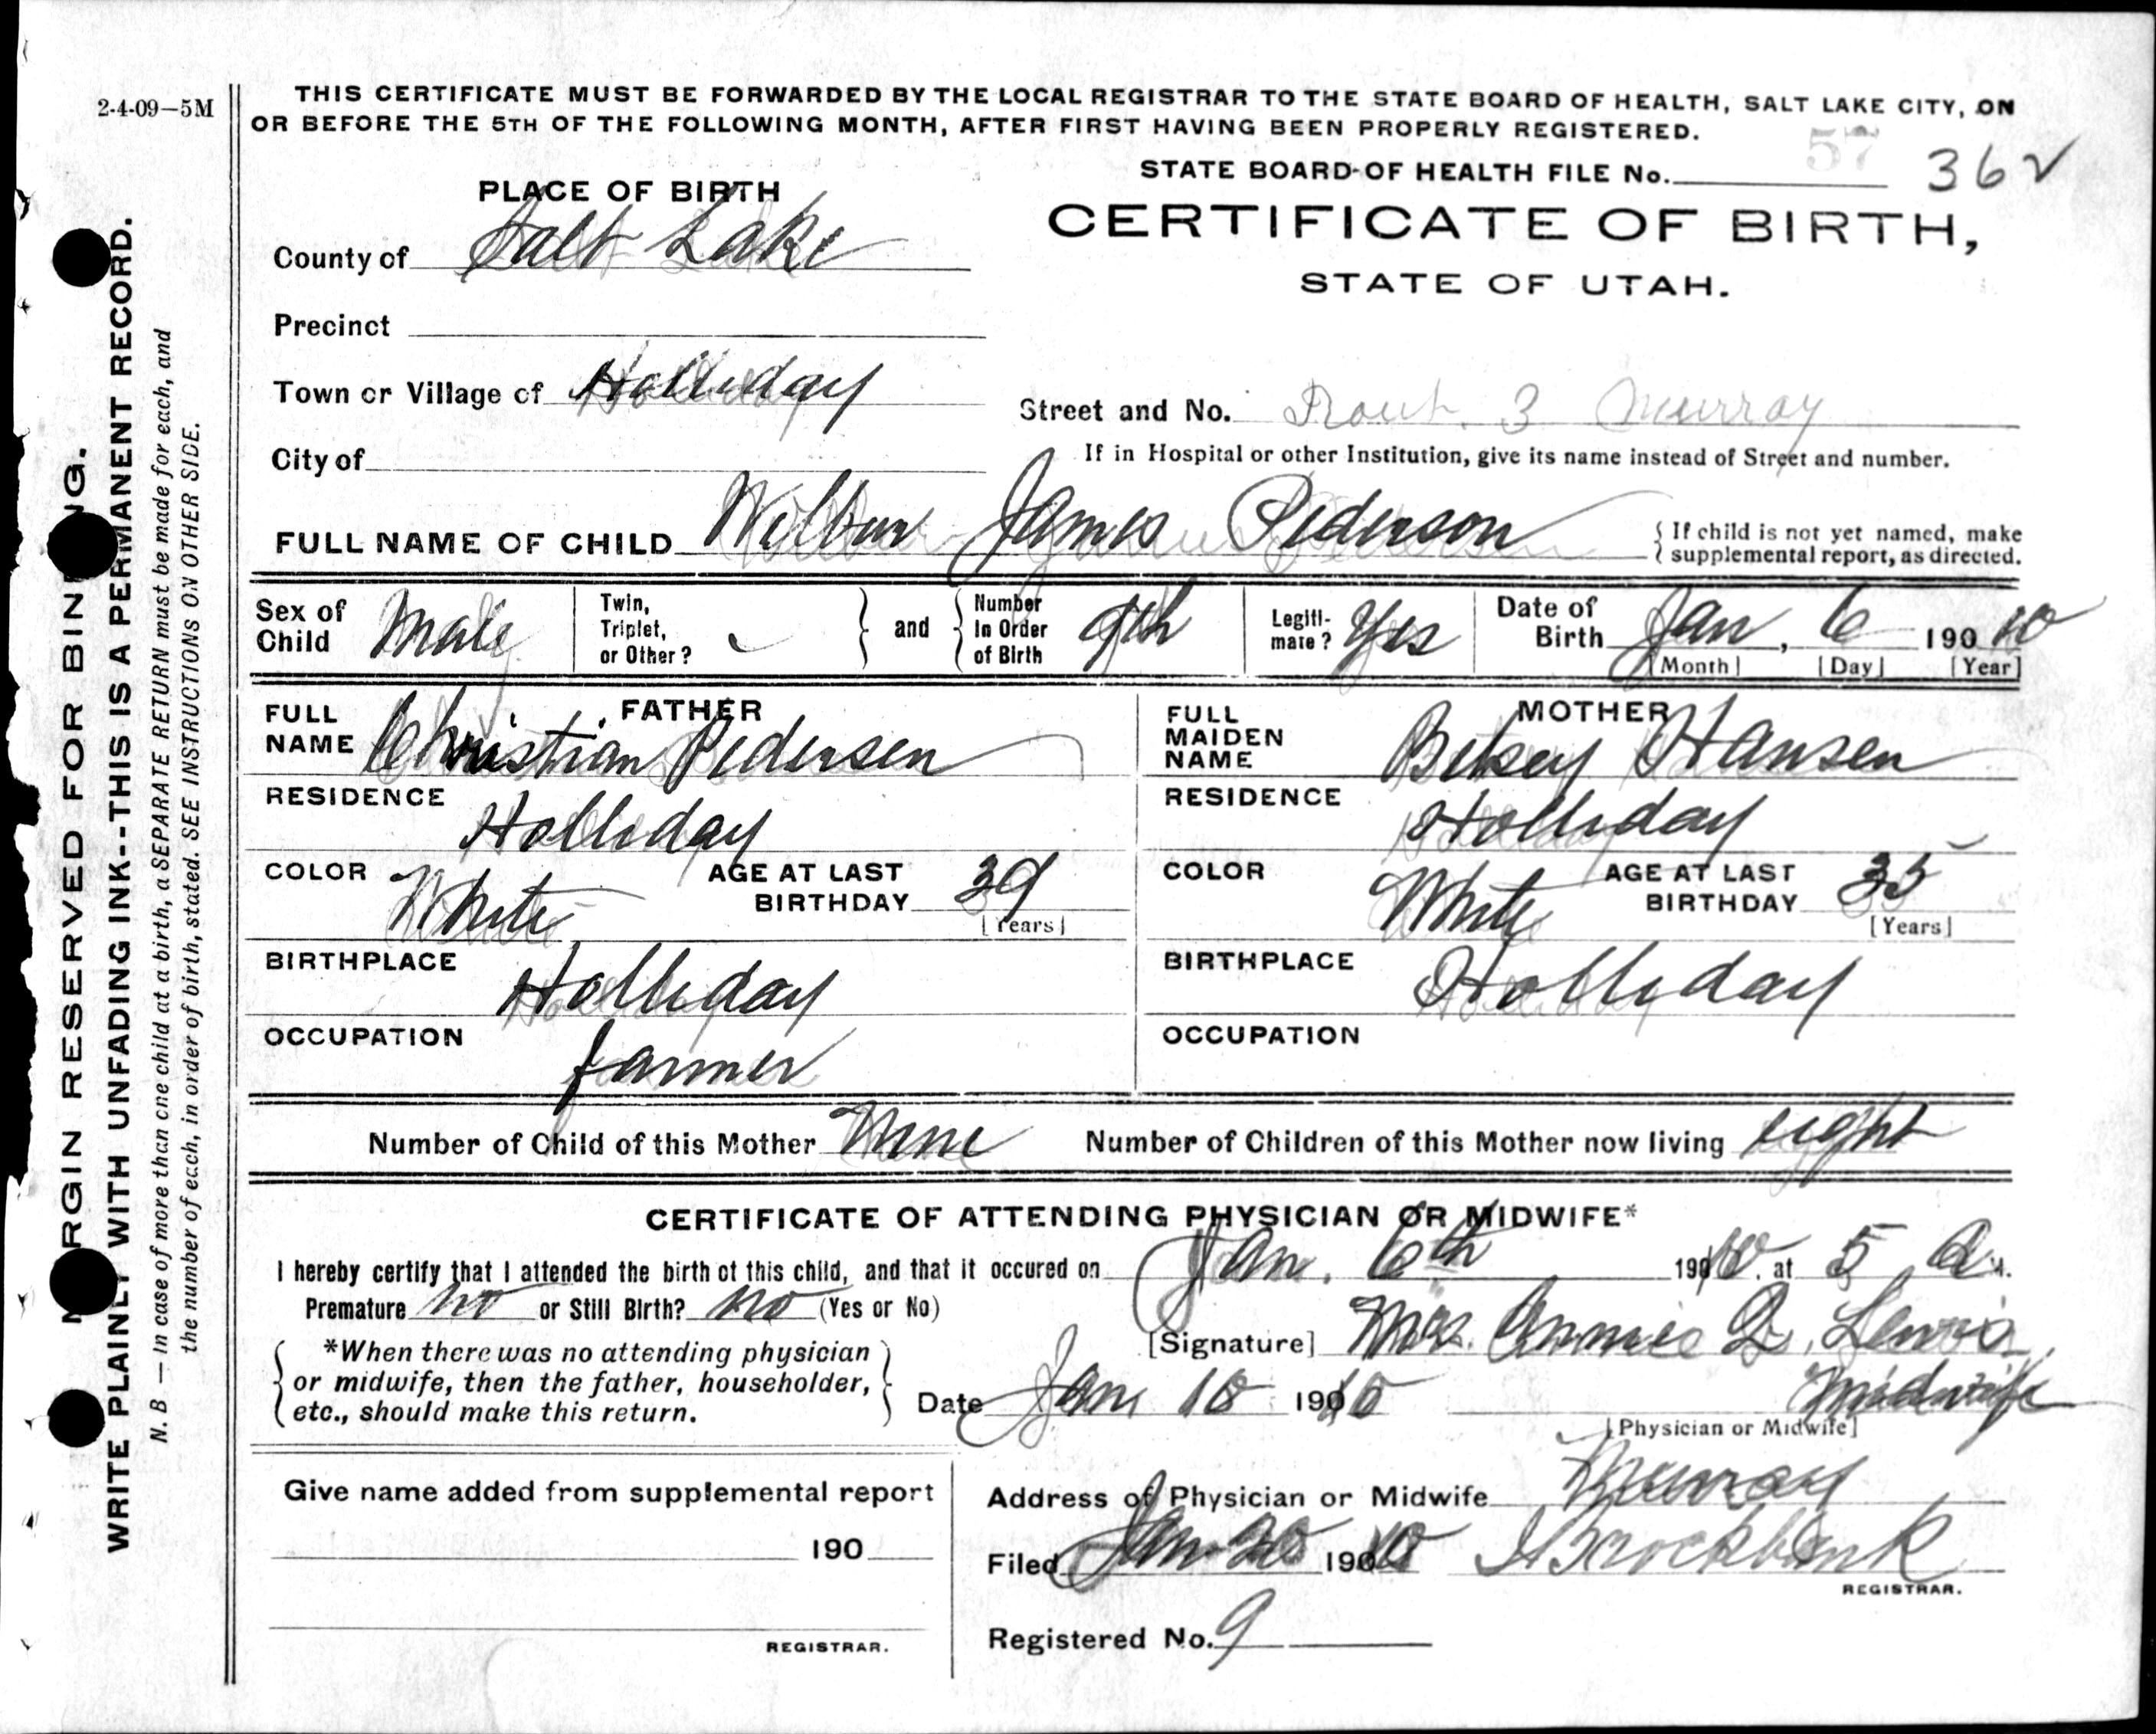 2-4-09—5M
THIS CERTIFICATE MUST BE FORWARDED BY THE LOCAL REGISTRAR TO THE STATE BOARD OF HEALTH, SALT LAKE CITY, ON
OR BEFORE THE 5TH OF THE FOLLOWING MONTH, AFTER FIRST HAVING BEEN PROPERLY REGISTERED.
57
STATE BOARD OF HEALTH FILE No. 362
CERTIFICATE OF BIRTH,
STATE OF UTAH.
PLACE OF BIRTH
County of Salt Lake
Precinct
Town or Village of Holliday
Street and No. Rout. 3 Murray
City of
If in Hospital or other Institution, give its name instead of Street and number.
FULL NAME OF CHILD Wilbur James Pederson
{ If child is not yet named, make
{ supplemental report, as directed.
Sex of Child Male
Twin, Triplet, or Other?
and
Number In Order of Birth 9th
Legiti-mate? Yes
Date of Birth Jan, 6 190 10
[Month] [Day] [Year]
FATHER
FULL NAME Christian Pedersen
RESIDENCE Holliday
COLOR White
AGE AT LAST BIRTHDAY 39
[Years]
BIRTHPLACE Holliday
OCCUPATION farmer
MOTHER
FULL MAIDEN NAME Betsey Hansen
RESIDENCE Holliday
COLOR White
AGE AT LAST BIRTHDAY 35
[Years]
BIRTHPLACE Holliday
OCCUPATION
Number of Child of this Mother Nine Number of Children of this Mother now living eight
CERTIFICATE OF ATTENDING PHYSICIAN OR MIDWIFE*
I hereby certify that I attended the birth of this child, and that it occured on Jan. 6th 1910, at 5 a M.
Premature no or Still Birth? no (Yes or No)
[Signature] Mrs. Annie Q. Lewis,
*When there was no attending physician
or midwife, then the father, householder,
etc., should make this return.
Date Jan 18 1910 Midwife
[Physician or Midwife]
Give name added from supplemental report
190
REGISTRAR.
Address of Physician or Midwife Murray
Filed Jan 20 1910 Brockbank
REGISTRAR.
Registered No. 9
MARGIN RESERVED FOR BINDING.
WRITE PLAINLY WITH UNFADING INK--THIS IS A PERMANENT RECORD.
N. B — In case of more than one child at a birth, a SEPARATE RETURN must be made for each, and
the number of each, in order of birth, stated. SEE INSTRUCTIONS ON OTHER SIDE.